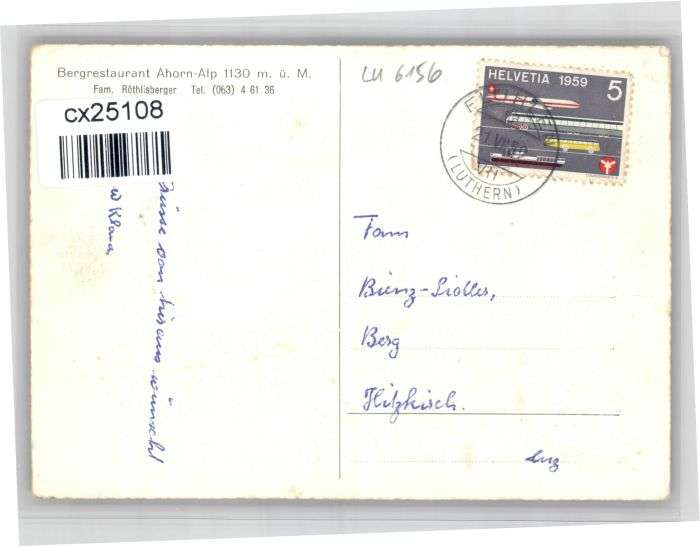 Bergrestaurant Ahorn-Alp 1130 m. ü. M.
Fam. Röthlisberger Tel. (063) 4 61 36
cx25108
LU 6156
HELVETIA 1959 5
(LUTHERN)
Grüsse von hieraus wünscht
Klara
Fam
Bienz-Sidler,
Berg
Hitzkirch.
Luz